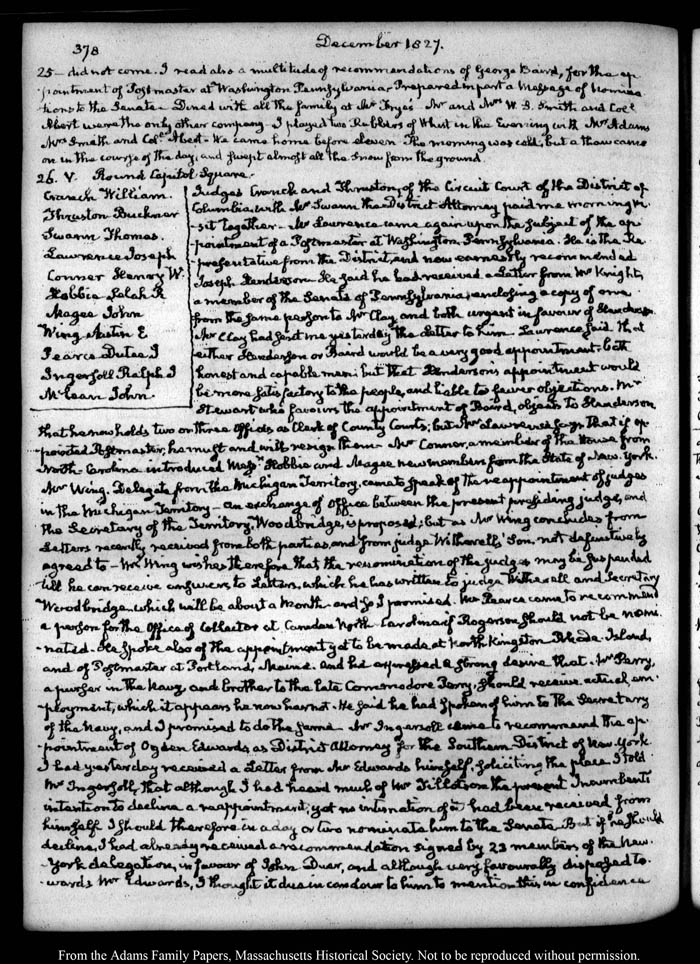 378
December 1827.
25— did not come. I read also a multitude of recommendations of George Baird, for the ap-
-pointment of Postmaster at Washington Pennsylvania. Prepared in part a Message of Nomina-
tions to the Senate. Dined with all the family at Mr Frye's. Mr and Mrs W. S. Smith and Coll
Abert were the only other company. I played two Rubbers of Whist in the Evening with Mrs Adams
Mrs Smith and Coll Abert. We came home before eleven. The morning was cold, but a thaw came
on in the course of the day, and swept almost all the Snow from the ground.
26. V. Round Capitol Square.
Cranch William.
Thruston Buckner
Swann Thomas.
Lawrence Joseph
Conner Henry W.
Hobbie Selah R
Magee John
Wing Austin E
Pearce Dutee J
Ingersoll Ralph J
McLean John.
Judges Cranch and Thruston, of the Circuit Court of the District of
Columbia, with Mr Swann the District Attorney paid me morning vi-
-sit together. Mr Lawrence came again upon the subject of the ap-
-pointment of a Postmaster at Washington, Pennsylvania. He is the Re-
-presentative from the District, and now earnestly recommended
Joseph Henderson. He said he had received a Letter from Mr Knight,
a member of the Senate of Pennsylvania, enclosing a copy of one
from the same person to Mr Clay, and both urgent in favour of Henderson.
Mr Clay had sent me yesterday the Letter to him. Lawrence said that
either Henderson or Baird would be a very good appointment. both
honest and capable men: but that Henderson's appointment would
be more satisfactory to the people, and liable to fewer objections. Mr
Stewart who favours the appointment of Baird, objects to Henderson,
that he now holds two or three Offices as Clerk of County Courts; but Mr Lawrence says that if ap-
pointed Postmaster, he must and will resign them. Mr Conner, a member of the House from
North Carolina introduced Messrs Hobbie and Magee new members from the State of New-York.
Mr Wing. Delegate from the Michigan Territory, came to speak of the reappointment of judges
in the Michigan Territory— an exchange of Office between the present presiding judge, and
the Secretary of the Territory, Woodbridge, is proposed; but as Mr Wing concludes from
Letters recently received from both parties, and from judge Witherell's Son, not definitively
agreed to— Mr Wing wishes therefore that the renomination of the judges may be suspended
till he can receive answers to Letters, which he has written to judge Witherell and Secretary
Woodbridge. which will be about a Month— and so I promised. Mr Pearce came to recommend
a person for the Office of Collector at Camden North Carolina if Rogerson should not be nomi-
-nated. He spoke also of the appointment yet to be made at North Kingston Rhode-Island,
and of Postmaster at Portland, Maine. and he expressed a strong desire that Mr Perry,
a purser in the Navy, and brother to the late Commodore Perry, should receive actual em-
ployment, which it appears he now has not. He said he had spoken of him to the Secretary
of the Navy, and I promised to do the same. Mr Ingersoll came to recommend the ap-
-pointment of Ogden Edwards, as District Attorney for the Southern District of New-York.
I had yesterday received a Letter from Mr Edwards himself, soliciting the place. I told
Mr Ingersoll, that although I had heard much of Mr Tillotson the present Incumbent's
intention to decline a reappointment; yet no intimation of it had been received from
himself. I should therefore in a day or two nominate him to the Senate. But if he should
decline, I had already received a recommendation signed by 23 members of the New-
-York delegation, in favour of John Duer, and although very favourably disposed to-
-wards Mr Edwards, I thought it due in candour to him to mention this in confidence
From the Adams Family Papers, Massachusetts Historical Society. Not to be reproduced without permission.